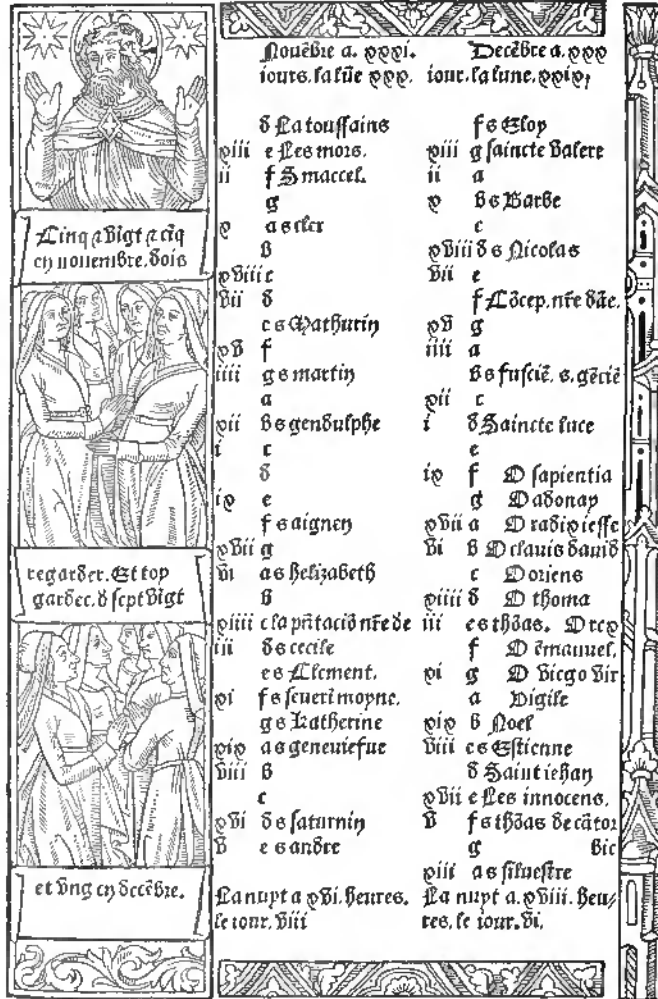 Cinq a vigt a cīq
en nouembre. dois
regarder. Et toy
garder. d sept vigt
et vng en decēbre.
Nouēbre a. xxxi.
iours. la lūe xxx.
d La toussains
xiii e Les mors.
ii f S maccel.
g
x a s cler
b
xviii c
vii d
e s Mathurin
xv f
iiii g s martin
a
xii b s gendulphe
i c
d
ix e
f s aignen
xvii g
vi a s helizabeth
b
xiiii c la pñtaciō nr̄e de
iii d s cecile
e s Clement.
xi f s seueri moyne.
g s Katherine
xix a s geneuiefue
viii b
c
xvi d s saturnin
v e s andre
La nuyt a xvi. heures.
le iour. viii
Decēbre a. xxx
iour. la lune. xxix,
f s Eloy
xiii g saincte valere
ii a
x b s Barbe
c
xviii d s Nicolas
vii e
f Cōcep. nr̄e dāe.
xv g
iiii a
b s fusciē. s. gēciē
xii c
i d Saincte luce
e
ix f O sapientia
g O adonay
xvii a O radix iesse
vi b O clauis dauid
c O oriens
xiiii d O thoma
iii e s thōas. O rex
f O ēmanuel.
xi g O virgo vir
a Vigile
xix b Noel
viii c s Estienne
d Saint iehan
xvii e Les innocens.
v f s thōas de cātor
g bie
xiii a s siluestre
La nuyt a. xviii. heu/
res. le iour. vi.